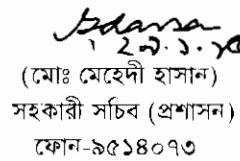 ২৯.১.১৫
(মোঃ মেহেদী হাসান)
সহকারী সচিব (প্রশাসন)
ফোন-৯৫১৪০৭৩